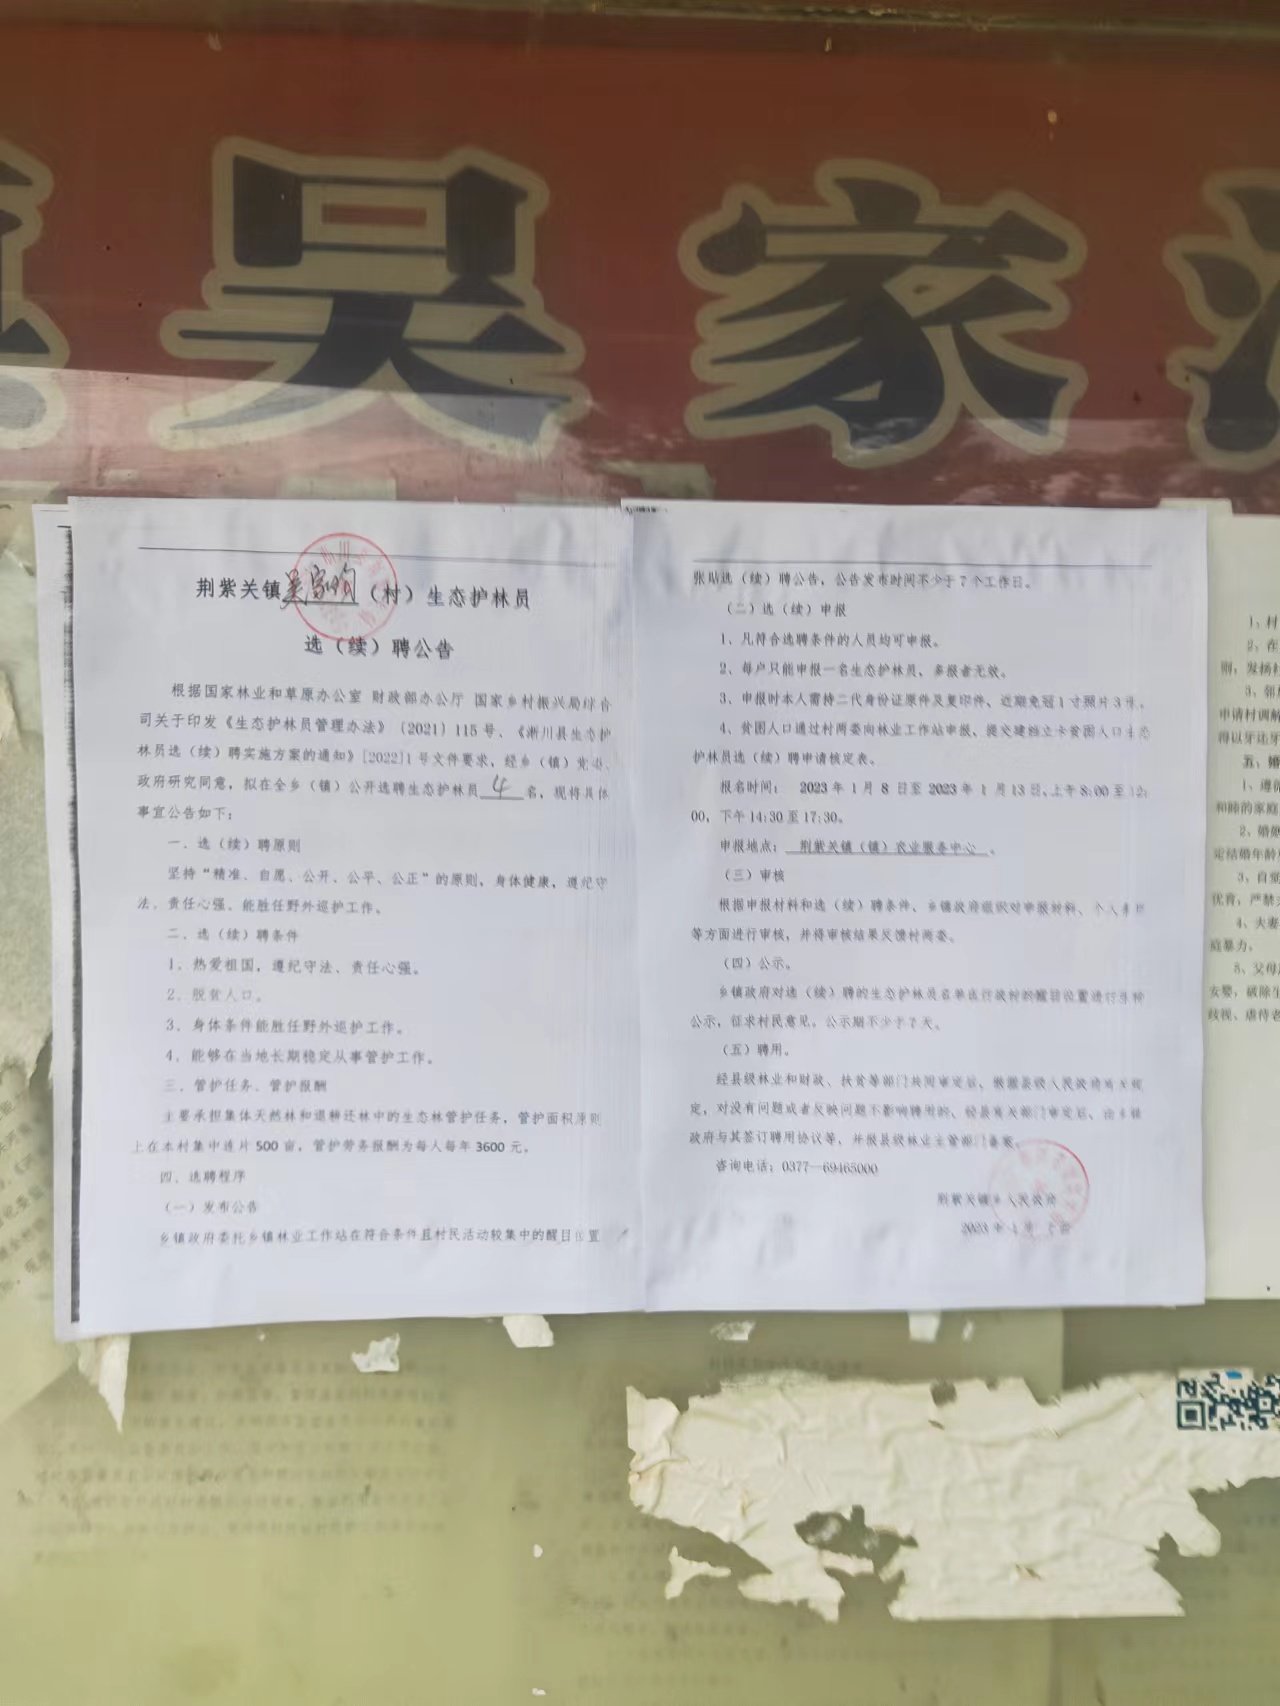 吴家
荆紫关镇吴家沟(村)生态护林员
选(续)聘公告
根据国家林业和草原办公室 财政部办公厅 国家乡村振兴局综合
司关于印发《生态护林员管理办法》(2021)115号、《淅川县生态护
林员选(续)聘实施方案的通知》[2022]1号文件要求,经乡(镇)党委、
政府研究同意,拟在全乡(镇)公开选聘生态护林员4名,现将具体
事宜公告如下:
一、选(续)聘原则
坚持“精准、自愿、公开、公平、公正”的原则,身体健康,遵纪守
法、责任心强、能胜任野外巡护工作。
二、选(续)聘条件
1、热爱祖国,遵纪守法、责任心强。
2、脱贫人口。
3、身体条件能胜任野外巡护工作。
4、能够在当地长期稳定从事管护工作。
三、管护任务、管护报酬
主要承担集体天然林和退耕还林中的生态林管护任务,管护面积原则
上在本村集中连片500亩,管护劳务报酬为每人每年3600元。
四、选聘程序
(一)发布公告
乡镇政府委托乡镇林业工作站在符合条件且村民活动较集中的醒目位置
张贴选(续)聘公告,公告发布时间不少于7个工作日。
(二)选(续)申报
1、凡符合选聘条件的人员均可申报。
2、每户只能申报一名生态护林员,多报者无效。
3、申报时本人需持二代身份证原件及复印件、近期免冠1寸照片3张。
4、贫困人口通过村两委向林业工作站申报,提交建档立卡贫困人口生态
护林员选(续)聘申请核定表。
报名时间: 2023年1月8日至2023年1月13日,上午8:00至12:
00,下午14:30至17:30。
申报地点: 荆紫关镇(镇)农业服务中心 。
(三)审核
根据申报材料和选(续)聘条件、乡镇政府组织对申报材料、个人
等方面进行审核,并将审核结果反馈村两委。
(四)公示。
乡镇政府对选(续)聘的生态护林员名单在行政村的醒目位置进行张榜
公示,征求村民意见,公示期不少于7天。
(五)聘用。
经县级林业和财政、扶贫等部门共同审定后、报县级人民政府
定,对没有问题或者反映问题不影响聘用的、经县有关部门审定后、由乡镇
政府与其签订聘用协议等,并报县级林业主管部门备案。
咨询电话:0377—69465000
荆紫关镇乡人民政府
2023年1月
1、村
2、在
则,发扬
3、邻
申请村调解
得以牙还牙
五、婚
1、遵循
和睦的家庭
2、婚姻
定结婚年龄
3、自觉
优育,严禁
4、夫妻
庭暴力。
5、父母
女婴,破除
歧视、虐待老